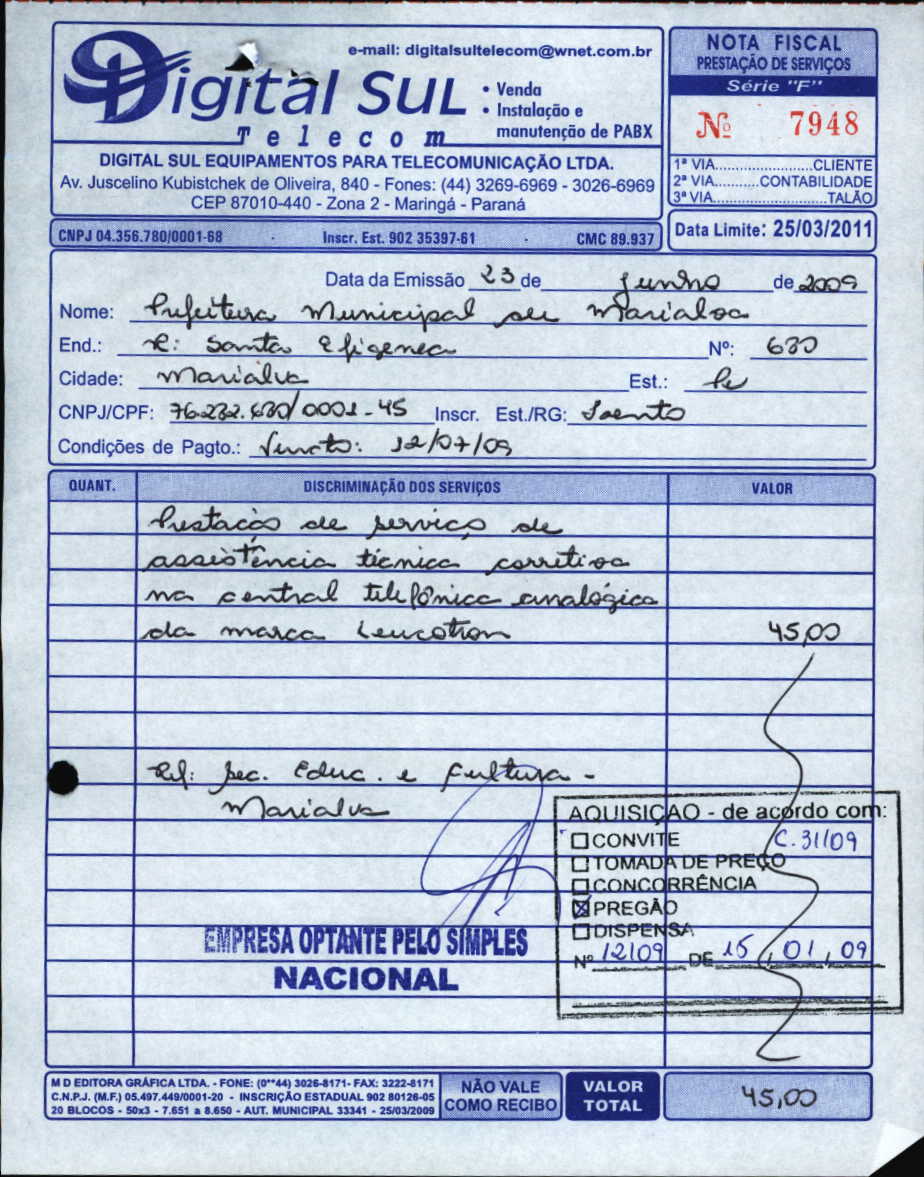 e-mail: digitalsultelecom@wnet.com.br
Digital SUL
Telecom
• Venda
• Instalação e
manutenção de PABX
DIGITAL SUL EQUIPAMENTOS PARA TELECOMUNICAÇÃO LTDA.
Av. Juscelino Kubistchek de Oliveira, 840 - Fones: (44) 3269-6969 - 3026-6969
CEP 87010-440 - Zona 2 - Maringá - Paraná
NOTA FISCAL
PRESTAÇÃO DE SERVIÇOS
Série "F"
Nº 7948
1ª VIA.......................CLIENTE
2ª VIA...........CONTABILIDADE
3ª VIA............................TALÃO
CNPJ 04.356.780/0001-68 - Inscr. Est. 902 35397-61 - CMC 89.937
Data Limite: 25/03/2011
Data da Emissão 23 de Junho de 2009
Nome: Prefeitura Municipal de Marialva
End.: R: Santa Efigenea Nº: 680
Cidade: Marialva Est.: Pr
CNPJ/CPF: 76.282.680/0001-45 Inscr. Est./RG: Isento
Condições de Pagto.: Vencto: 12/07/09
QUANT. DISCRIMINAÇÃO DOS SERVIÇOS VALOR
Prestação de serviço de
assistência técnica corretiva
na central telefônica analógica
da marca Leucotron 45,00
Ref: Sec. Educ. e Cultura -
Marialva
AQUISIÇÃO - de acordo com:
CONVITE C. 31/09
TOMADA DE PREÇO
CONCORRÊNCIA
PREGÃO
DISPENSA
Nº 12/09 DE 15, 01, 09
EMPRESA OPTANTE PELO SIMPLES
NACIONAL
M D EDITORA GRÁFICA LTDA. - FONE: (0**44) 3026-8171- FAX: 3222-8171
C.N.P.J. (M.F.) 05.497.449/0001-20 - INSCRIÇÃO ESTADUAL 902 80126-05
20 BLOCOS - 50x3 - 7.651 a 8.650 - AUT. MUNICIPAL 33341 - 25/03/2009
NÃO VALE
COMO RECIBO
VALOR
TOTAL
45,00